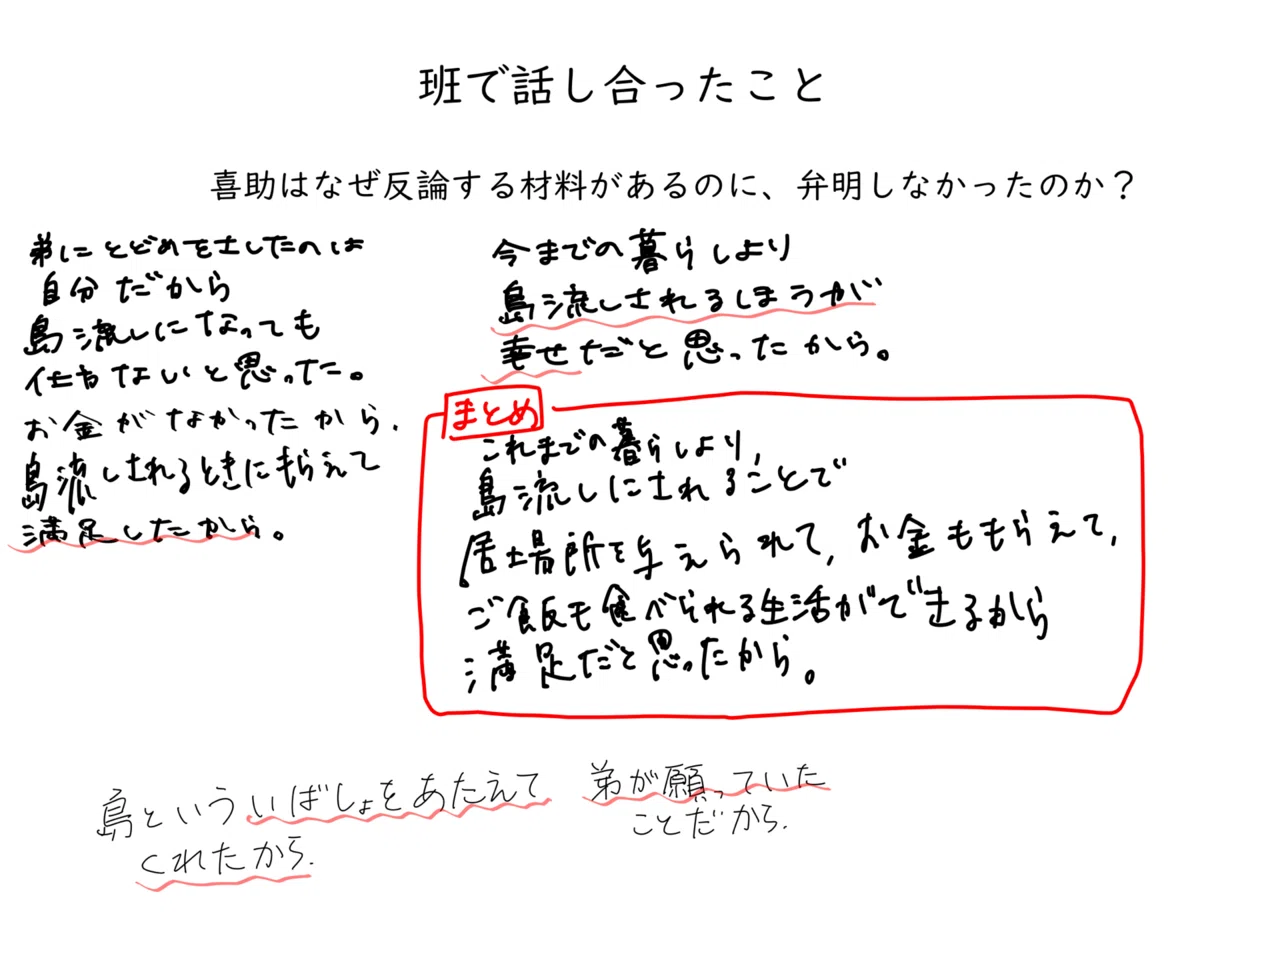 班で話し合ったこと
喜助はなぜ反論する材料があるのに、弁明しなかったのか？
弟にとどめをさしたのは
自分だから
島流しになっても
仕方ないと思った。
お金がなかったから、
島流しされるときにもらえて
満足したから。
今までの暮らしより
島流しされるほうが
幸せだと思ったから。
まとめ
これまでの暮らしより、
島流しにされることで
居場所を与えられて、お金ももらえて、
ご飯も食べられる生活ができるから
満足だと思ったから。
島といういばしょをあたえて
くれたから.
弟が願っていた
ことだから.